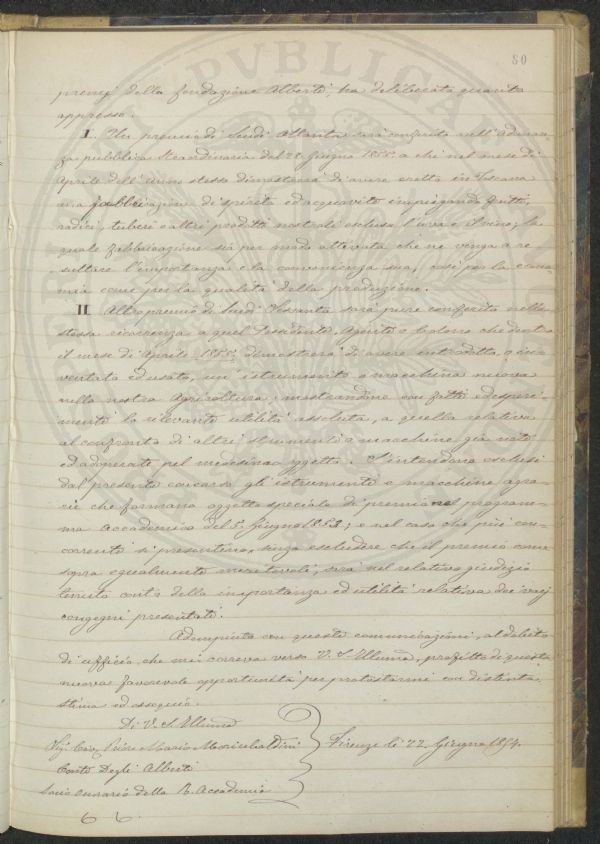 80
premj della fondazione Alberti, ha deliberato quanto
appresso.
I. Un premio di Scudi Ottanta sarà conferito nell'adunan-
za pubblica straordinaria del 24 Giugno 1855 a chi nel mese di
Aprile dell'anno stesso dimostrerà di avere eretta in Toscana
una fabbricazione di spirito ed acquavite impiegando frutti,
radici, tuberi o altri prodotti nostrali esclusa l'uva e il vino; la
quale fabbricazione sia per modo attivata che ne venga a re-
sultare l'importanza e la convenienza sua, così per la econo
mia come per la qualità della produzione.
II. Altro premio di Scudi Sessanta sarà pure conferito nella
stessa ricorrenza a quel Possidente, Agente o Colono che dentro
il mese di Aprile 1855, dimostrerà di avere introdotto, o in-
ventato ed usato, un'istrumento o macchina nuova
nella nostra Agricoltura; mostrandone con fatti ed esperi-
menti la rilevante utilità assoluta, o quella relativa
al confronto di altri strumenti o macchine già note
ed adoperate pel medesimo oggetto. S'intendono esclusi
dal presente concorso gli istrumenti e macchine agra-
rie che formano oggetto speciale di premio nel program-
ma Accademico del Giugno 1852; e nel caso che più con-
correnti si presentino, senza escludere che il premio come
sopra egualmente meritevoli, sarà nel relativo giudizio
tenuto conto della importanza ed utilità relativa dei varj
congegni presentati.
Adempiuto con queste comunicazioni, al debito
di ufficio che mi correva verso V. S. Illuma, profitto di questa
nuova favorevole opportunità per protestarmi con distinta
stima ed ossequio.
Di V. S. Illuma
Sig. Cav. Priore Mario Mori Ubaldini
Conte Degli Alberti
Socio onorario della R. Accademia
Firenze li 22. Giugno 1854.